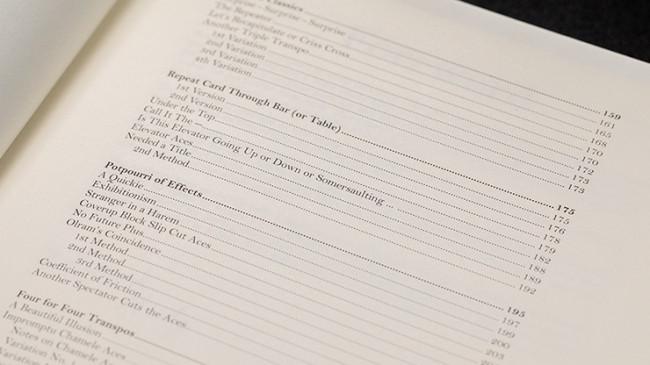 Classics 159
Surprise - Surprise - Surprise 161
The Repeater 165
Let's Recapitulate or Criss Cross 168
Another Triple Transpo 170
1st Variation 170
2nd Variation 172
3rd Variation 173
4th Variation 173
Repeat Card Through Bar (or Table) 175
1st Version 175
2nd Version 176
Under the Top 178
Call It The – 179
Is This Elevator Going Up or Down or Somersaulting ... 182
Elevator Aces 188
Needed a Title 189
2nd Method 192
Potpourri of Effects 195
A Quickie 197
Exhibitionism 199
Stranger in a Harem 200
Coverup Block Slip Cut Aces 203
No Future Plus
Olram's Coincidence
1st Method
2nd Method
3rd Method
Coefficient of Friction
Another Spectator Cuts the Aces
Four for Four Transpos
A Beautiful Illusion
Impromptu Chamele Aces
Notes on Chamele Aces
Variation No. 1
Variation